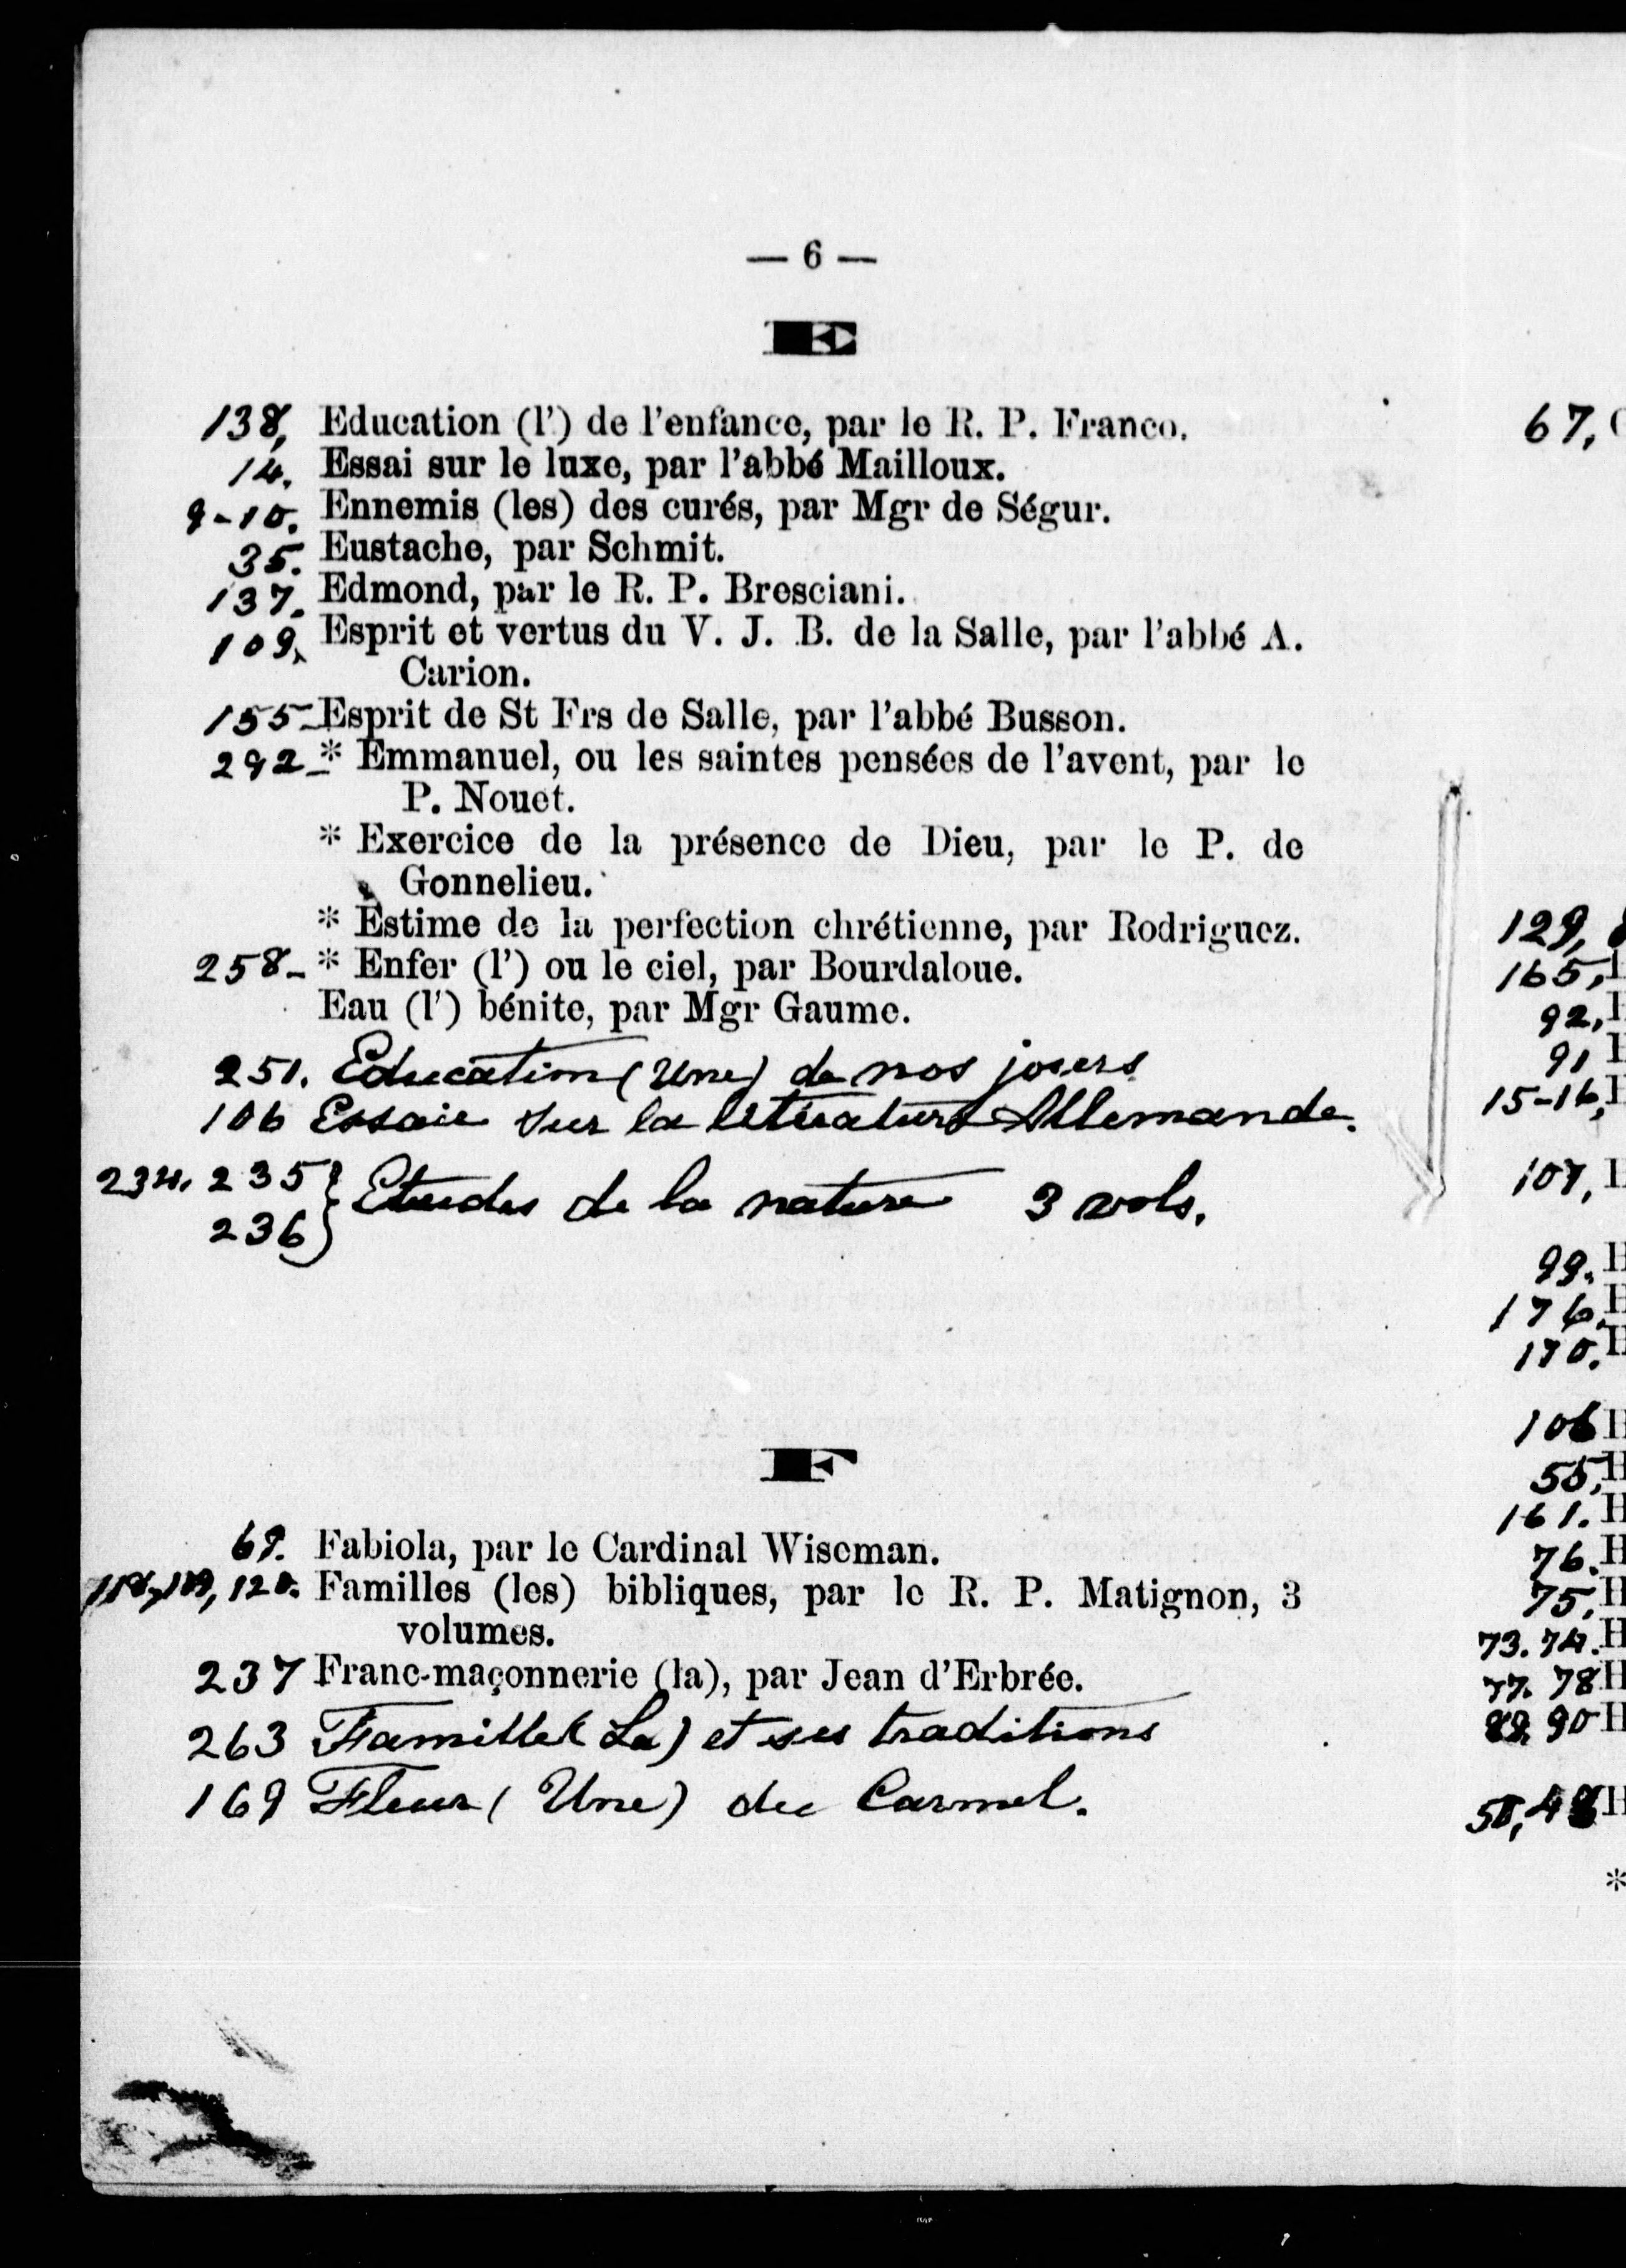 — 6 —
E
138, Education (l') de l'enfance, par le R. P. Franco.
14. Essai sur le luxe, par l'abbé Mailloux.
9-10. Ennemis (les) des curés, par Mgr de Ségur.
35. Eustache, par Schmit.
137. Edmond, par le R. P. Bresciani.
109, Esprit et vertus du V. J. B. de la Salle, par l'abbé A.
Carion.
155- Esprit de St Frs de Salle, par l'abbé Busson.
292- * Emmanuel, ou les saintes pensées de l'avent, par le
P. Nouet.
* Exercice de la présence de Dieu, par le P. de
Gonnelieu.
* Estime de la perfection chrétienne, par Rodriguez.
258- * Enfer (l') ou le ciel, par Bourdaloue.
Eau (l') bénite, par Mgr Gaume.
251. Education (Une) de nos jours
106 Essaie sur la literature Allemande.
234. 235 } Etudes de la nature 3 vols.
236
F
69. Fabiola, par le Cardinal Wiseman.
118, 119, 120. Familles (les) bibliques, par le R. P. Matignon, 3
volumes.
237 Franc-maçonnerie (la), par Jean d'Erbrée.
263 Famille (La) et ses traditions
169 Fleur (Une) du Carmel.
67,
129,
165,
92,
91
15-16,
107,
99.
176.
170.
106
55,
161.
76.
75,
73. 74.
77. 78
89. 90
*